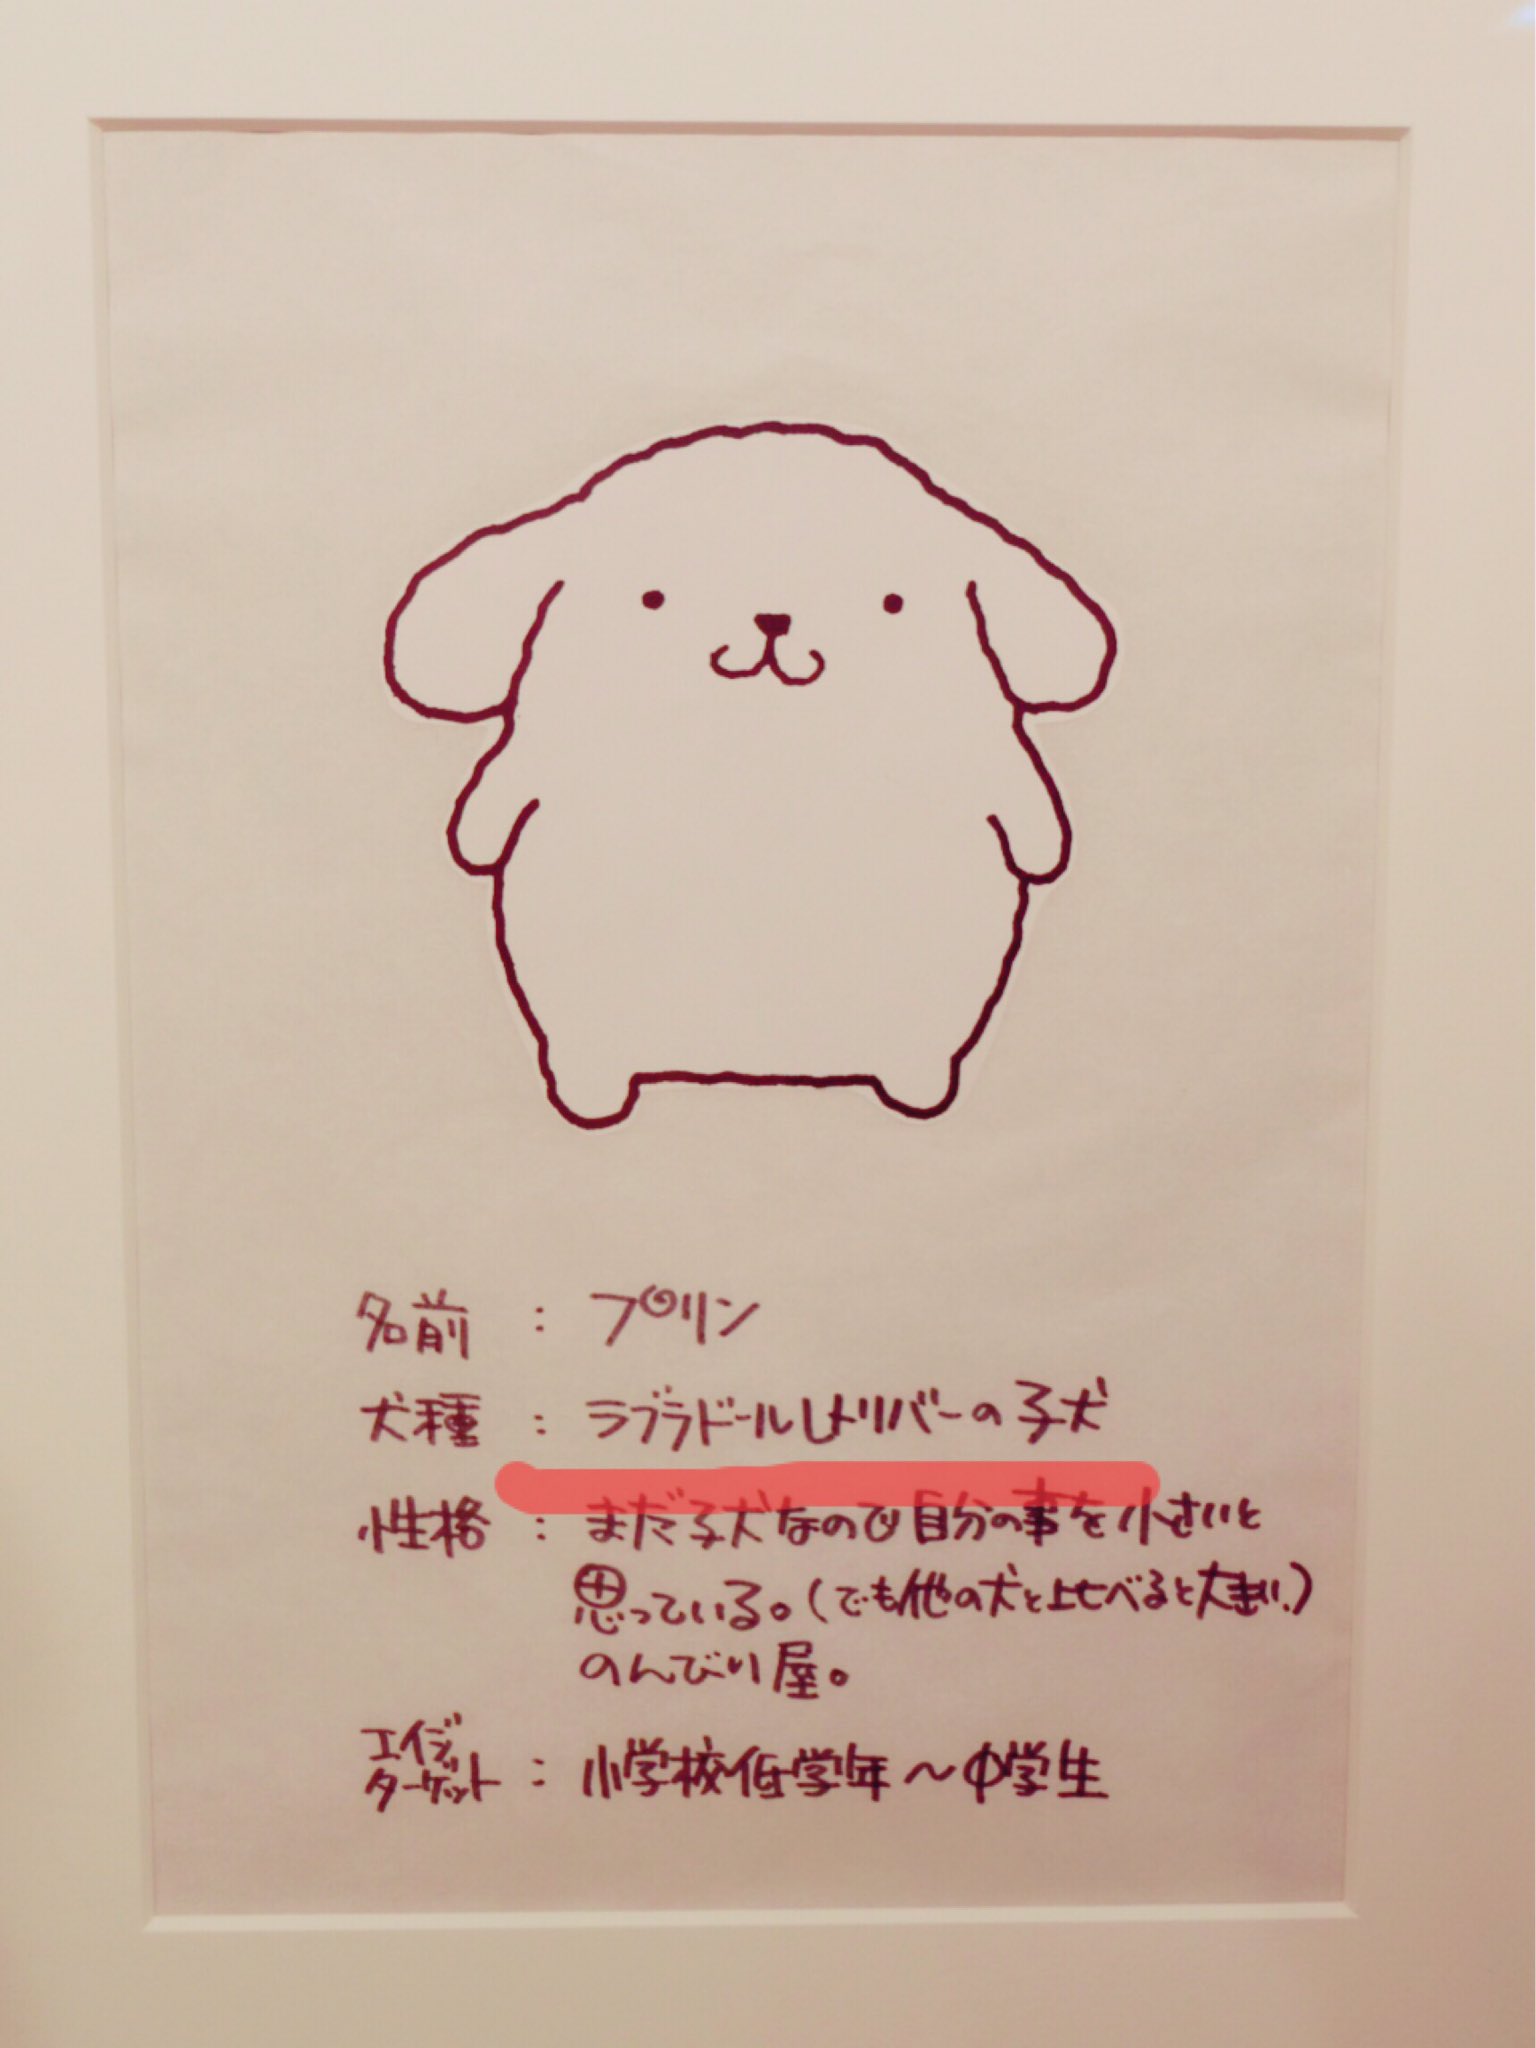 名前 : プリン
犬種 : ラブラドールレトリバーの子犬
性格 : まだ子犬なので自分の事を小さいと
思っている。(でも他の犬と比べると大きい。)
のんびり屋。
エイジ
ターゲット : 小学校低学年〜中学生